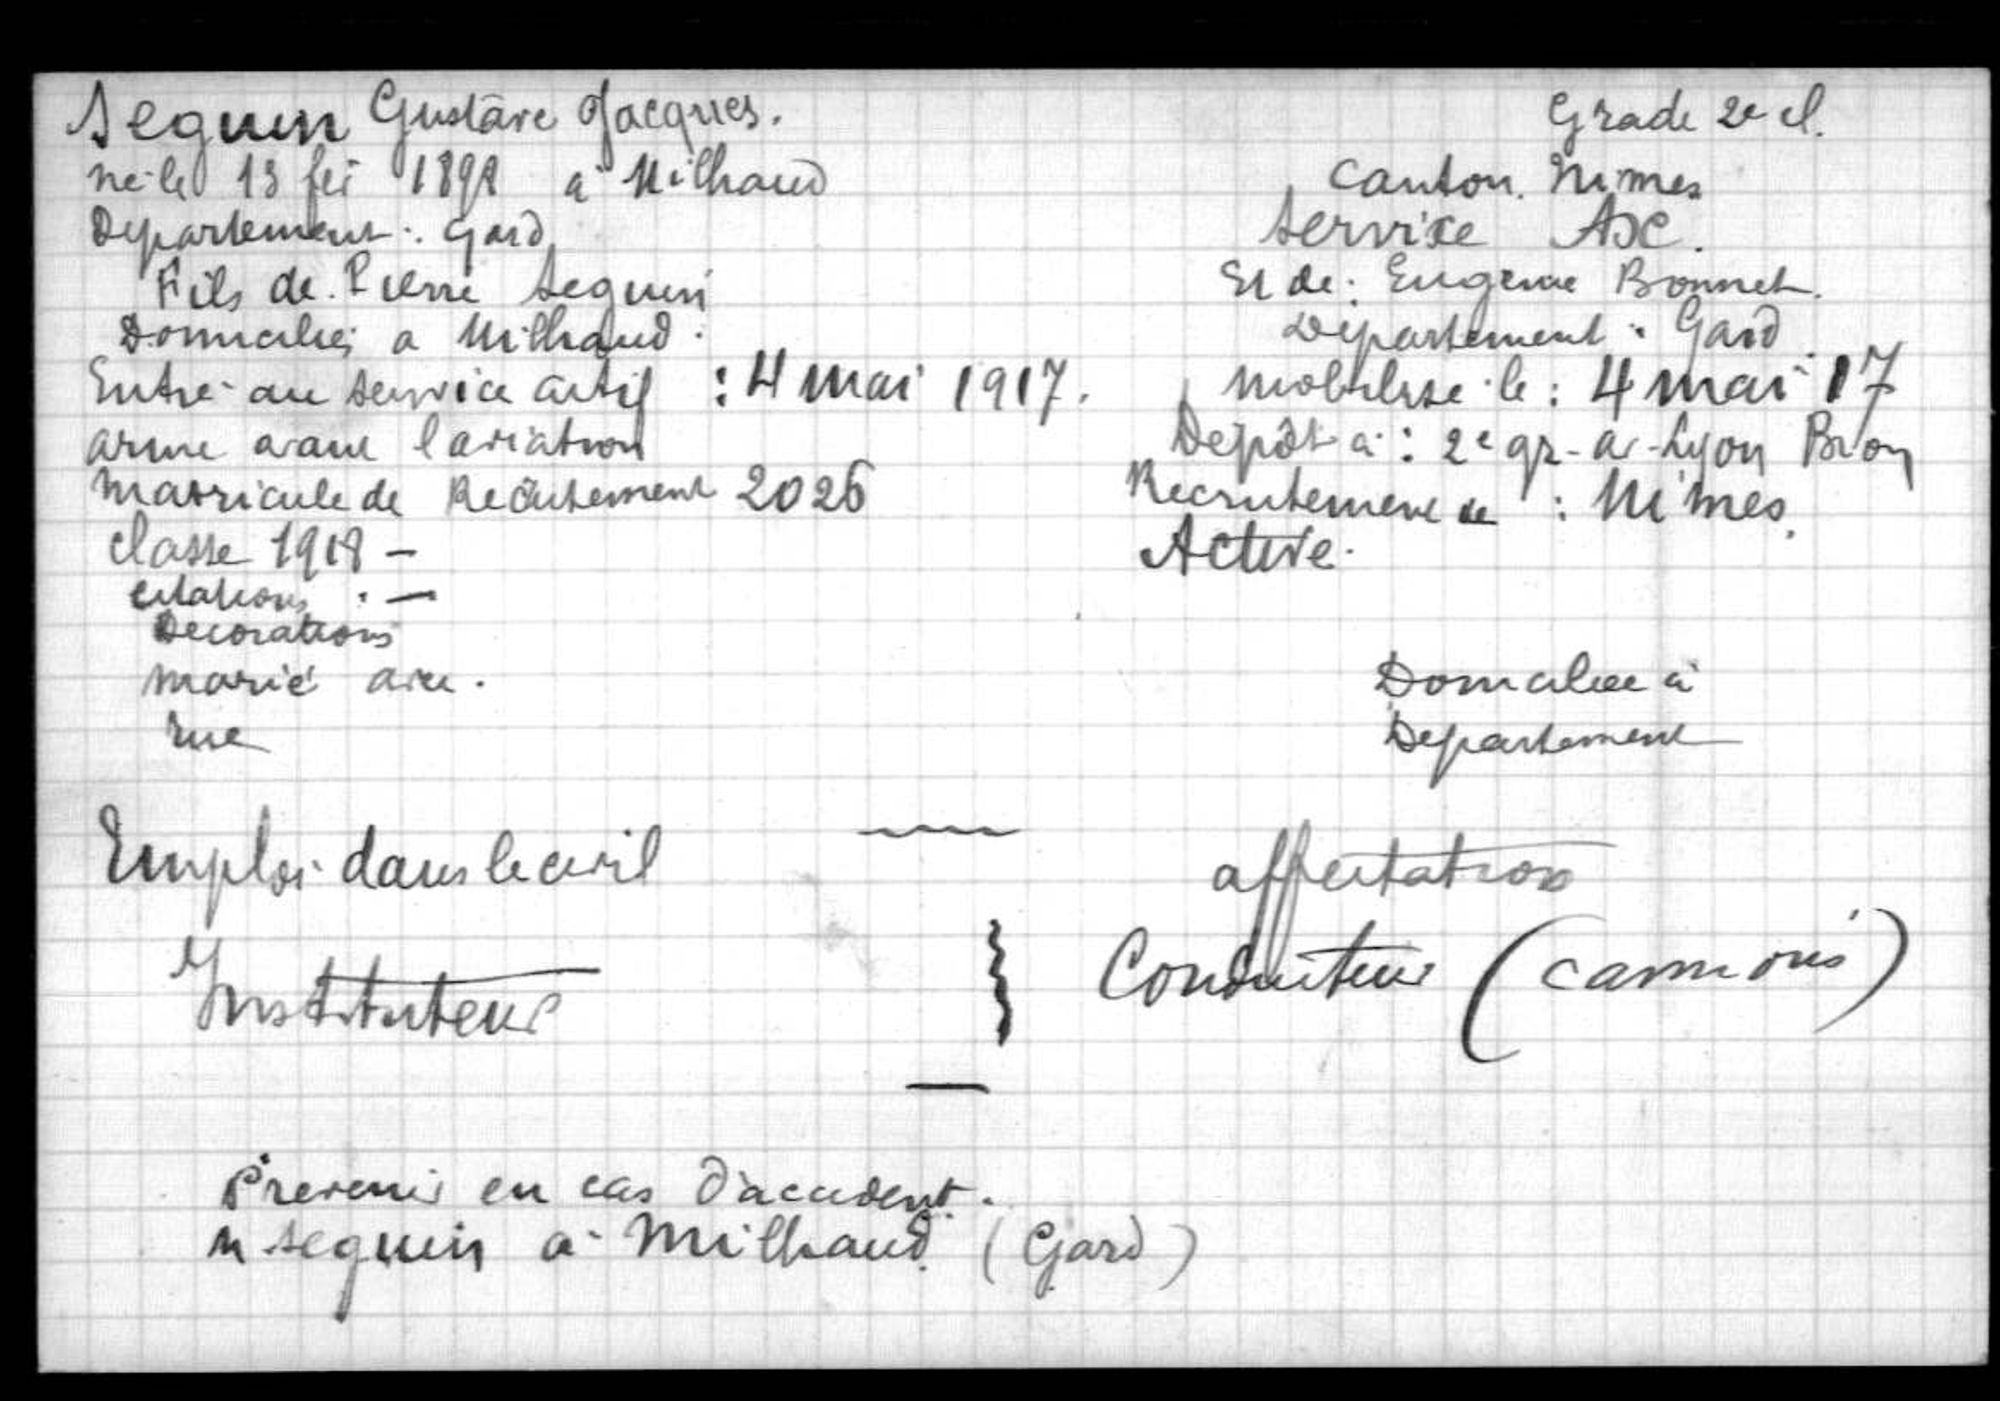 Seguin Gustave Jacques. Grade 2e cl.
né le 13 fev 1898 à Milhaud Canton. Nimes
Departement : Gard Service Asc.
Fils de. Pierre Seguin Et de : Eugenie Bonnet.
Domicilié a Milhaud. Departement : Gard
Entré au service actif : 4 mai 1917. mobilisé le : 4 mai 17
arme avant l'aviation Depôt à : 2e gr. a Lyon Bron
Matricule de Recrutement 2026 Recrutement de : Nimes.
Classe 1918 – Active.
citations : –
Decorations
marié avec. Domiciliée à
rue Departement
Emploi dans le civil affectation
Instituteur Conducteur (camions)
Prevenir en cas d'accident.
M Seguin à Milhaud. (Gard)